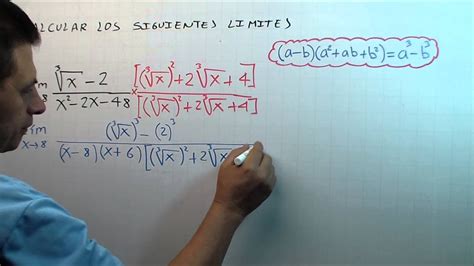 CALCULAR LOS SIGUIENTES LIMITES
(a-b)(a²+ab+b²)=a³-b³
∛x - 2 [(∛x)²+2∛x+4]
x²-2x-48 x [(∛x)²+2∛x+4]
lim x→8 (∛x)³-(2)³
(x-8)(x+6)[(∛x)²+2∛x